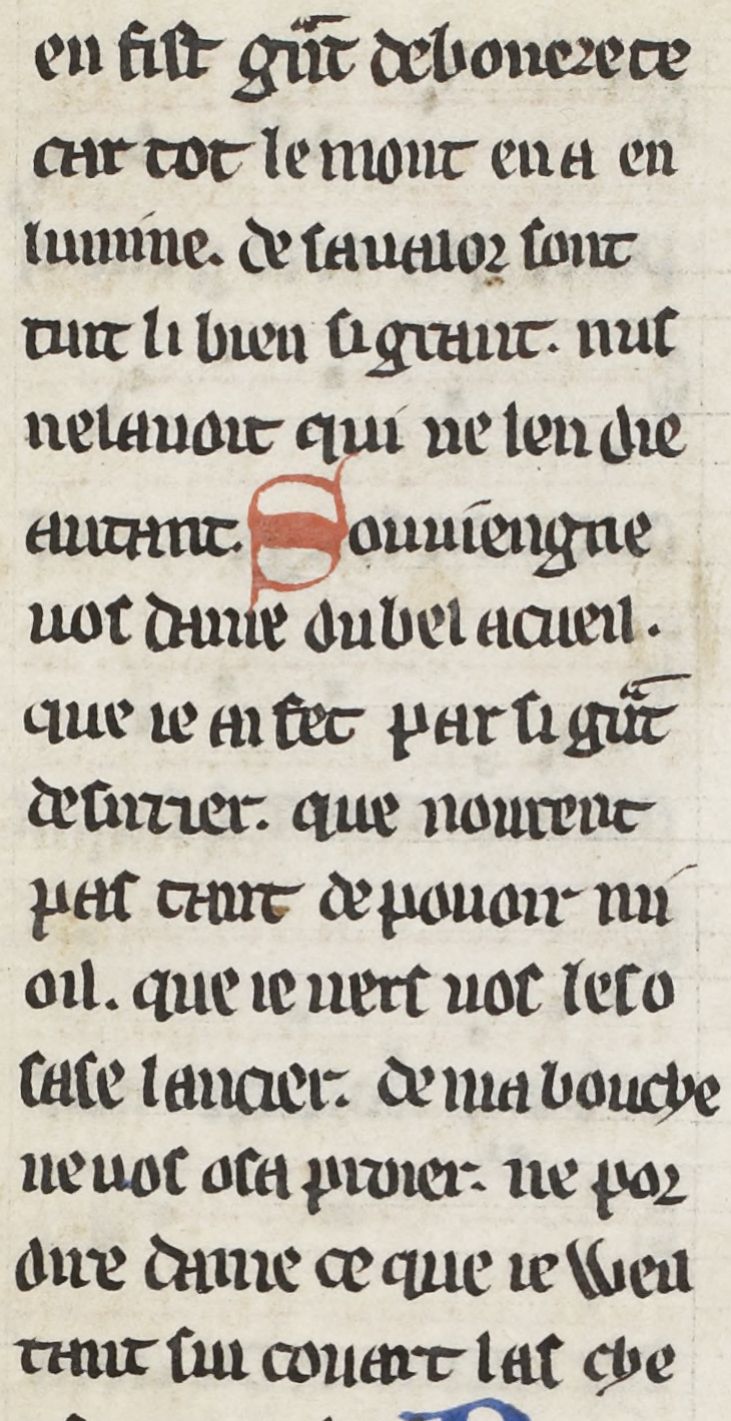 en fist gͣnt debonerete
car tot le mont en a en
lumine. de sa ualor sont
tuit li bien si grant. nus
nel auoit qui ne len die
autant. Souuiengne
uos dame du bel acueil.
que ie ai fet par si gͣnt
desirrier. que norent
pas tant de pouoir mi
oil. que ie uers uos les o
sase lancier. de ma bouche
ne uos osa proier. ne por
dire dame ce que ie Weil
tant sui couart las che